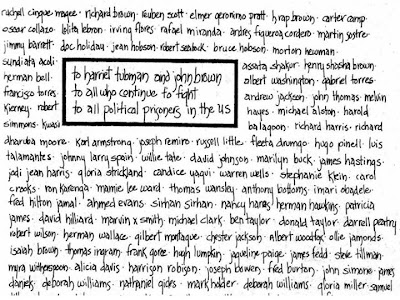 ruchell cinque magee · richard brown · reuben scott · elmer geronimo pratt · h rap brown · carter camp
oscar collazo · lolita lebron · irving flores · rafael miranda · andres figueroa cordero · martin sostre
jimmy barrett · doc holiday · jean hobson · robert seabock · bruce hobson · morton newman ·
sundiata acoli ·
herman bell ·
francisco torres
kierney · robert
simmons · kwasi
to harriet tubman and john brown
to all who continue to fight
to all political prisoners in the US
assata shakur · henry shasha brown
albert washington · gabriel torres ·
andrew jackson · john thomas · melvin
hayes · michael alston · harold
balagoon · richard harris · richard
dharuba moore · karl armstrong · joseph remiro · russell little · fleeta drumgo · hugo pinell · luis
talamantes · johnny larry spain · willie tate · david johnson · marilyn buck · james hastings ·
jodi jean harris · gloria strickland · candice yaqui · warren wells · stephanie klein · carol
crooks · ron karenga · mamie lee ward · thomas wansley · anthony bottoms · imari obadele ·
fred hilton jamal · ahmed evans · sirhan sirhan · nancy haras · herman hawkins · patricia
james · david hilliard · marvin x smith · michael clark · ben taylor · donald taylor · darrell peatry
robert wilson · herman wallace · gilbert montague · chester jackson · albert woodfox · ollie jamonds ·
isaiah brown · thomas ingram · frank goree · hugh lumpkin · jaqueline paige · james tedd · steve tillman ·
myra witherspoon · alicia davis · harrison robison · joseph bowen · fred burton · john simone · james
daniels · deborah williams · nathaniel gicks · mark holder · deborah williams · gloria miller · samuel